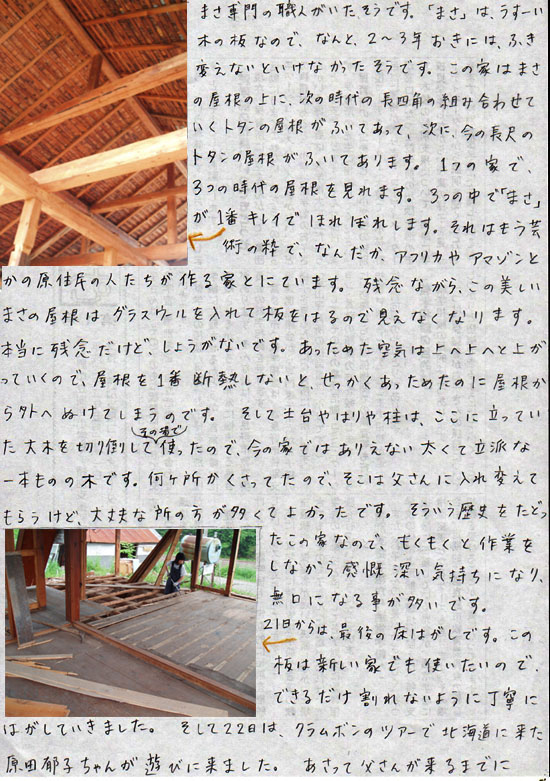 まさ専門の職人がいたそうです。「まさ」は、うすーい
木の板なので、なんと、2〜3年おきには、ふき
変えないといけなかったそうです。この家はまさ
の屋根の上に、次の時代の長四角の組み合わせて
いくトタンの屋根がふいてあって、次に、今の長尺の
トタンの屋根がふいてあります。1つの家で、
3つの時代の屋根を見れます。3つの中で「まさ」
が1番キレイでほれぼれします。それはもう芸
術の粋で、なんだか、アフリカやアマゾンと
かの原住民の人たちが作る家とにています。残念ながら、この美しい
まさの屋根はグラスウールを入れて板をはるので見えなくなります。
本当に残念だけど、しょうがないです。あっためた空気は上へ上へと上が
っていくので、屋根を1番断熱しないと、せっかくあっためたのに屋根か
ら外へぬけてしまうのです。そして土台やはりや柱は、ここに立ってい
た大木を切り倒してその場で使ったので、今の家ではありえない太くて立派な
一本ものの木です。何ヶ所かくさってたので、そこは父さんに入れ変えて
もらうけど、大丈夫な所の方が多くてよかったです。そういう歴史をたどっ
たこの家なので、もくもくと作業を
しながら感慨深い気持ちになり、
無口になる事が多いです。
21日からは、最後の床はがしです。この
板は新しい家でも使いたいので、
できるだけ割れないように丁寧に
はがしていきました。そして22日は、クラムボンのツアーで北海道に来た
原田郁子ちゃんが遊びに来ました。あさって父さんが来るまでに